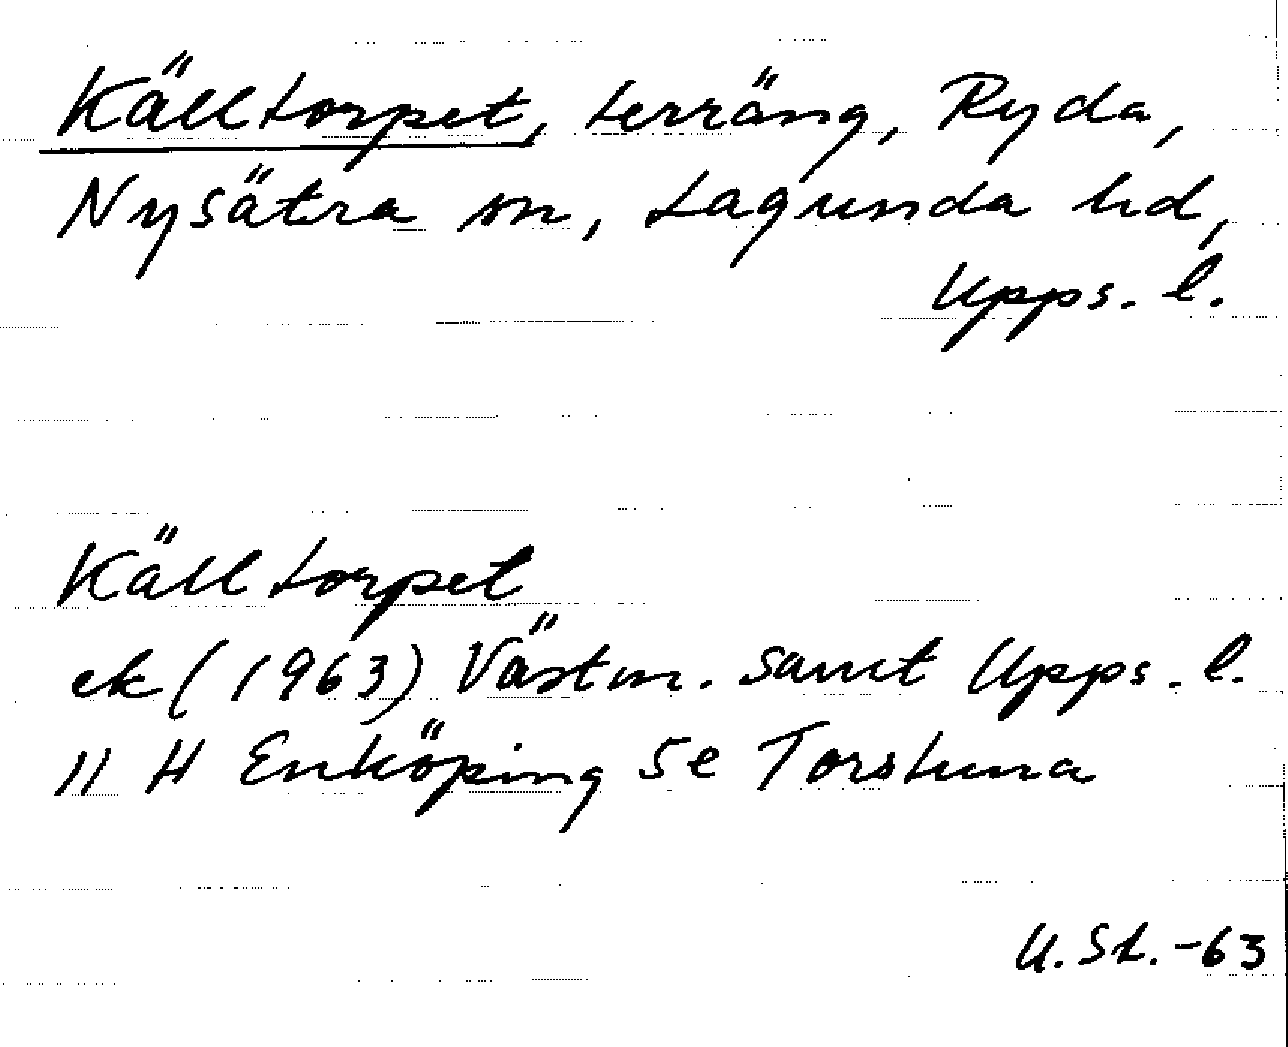 Källtorpet, terräng, Ryda,
Nysätra sn, Lagunda hd,
Upps. l.
Källtorpet
ek (1963) Västm. samt Upps. l.
11 H Enköping 5e Torstuna
U. St. -63